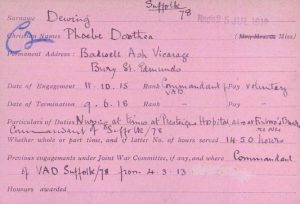 Suffolk
78
Surname Dewing
Christian Names Phoebe Dorothea (Mrs. or Miss)
Permanent Address: Badwell Ash Vicarage
Bury St. Edmunds
Date of Engagement 11.10.15 Rank Commandant Pay voluntary
VAD
Date of Termination 9.6.18 Rank " Pay "
Particulars of Duties Nursing at times at Hospital also at
Commandant of Suffolk/78
Whether whole or part time, and if latter No. of hours served 1450 hours
Previous engagements under Joint War Committee, if any, and where Commandant
of VAD Suffolk/78 from 4.3.13
Honours awarded